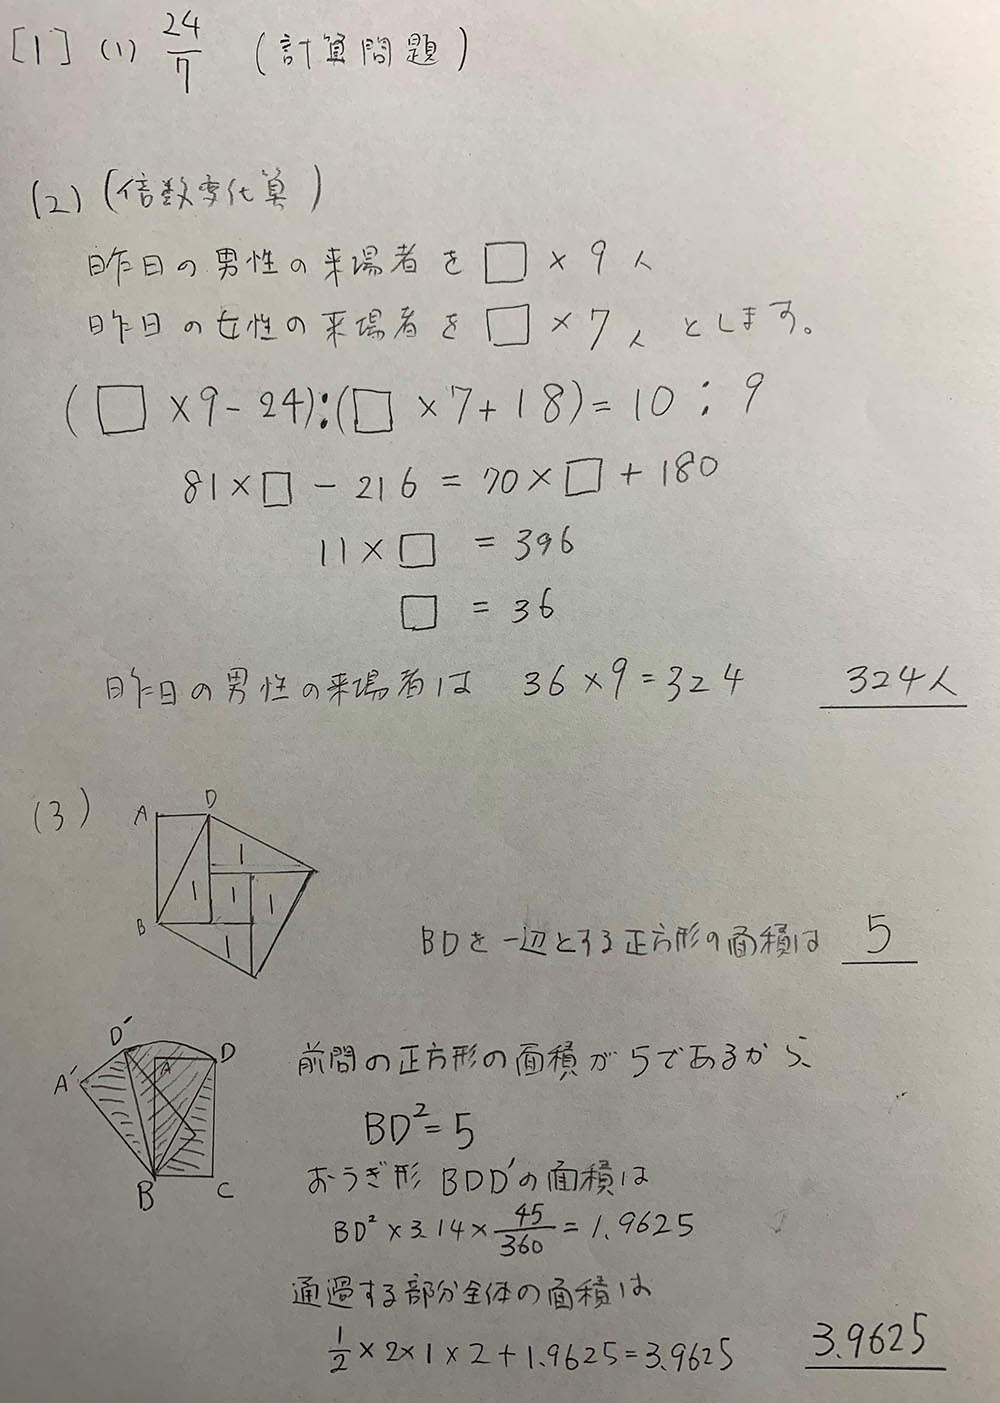 [1] (1) 24/7 (計算問題)
(2) (倍数変化算)
昨日の男性の来場者を□×9人
昨日の女性の来場者を□×7人とします。
(□×9-24):(□×7+18)=10:9
81×□-216=70×□+180
11×□=396
□=36
昨日の男性の来場者は 36×9=324 324人
(3)
A D
1
1 1 1
B
1
BDを一辺とする正方形の面積は 5
D' D
A' A
B C
前問の正方形の面積が5であるから、
BD²=5
おうぎ形BDD'の面積は
BD²×3.14×45/360=1.9625
通過する部分全体の面積は
1/2×2×1×2+1.9625=3.9625 3.9625